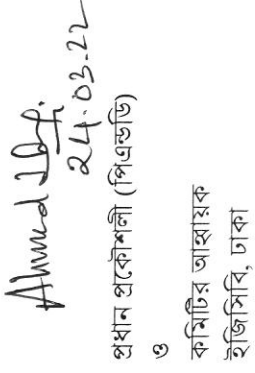 Ahmed
24.03.22
প্রধান প্রকৌশলী (পিএন্ডডি)
ও
কমিটির আহ্বায়ক
ইজিসিবি, ঢাকা